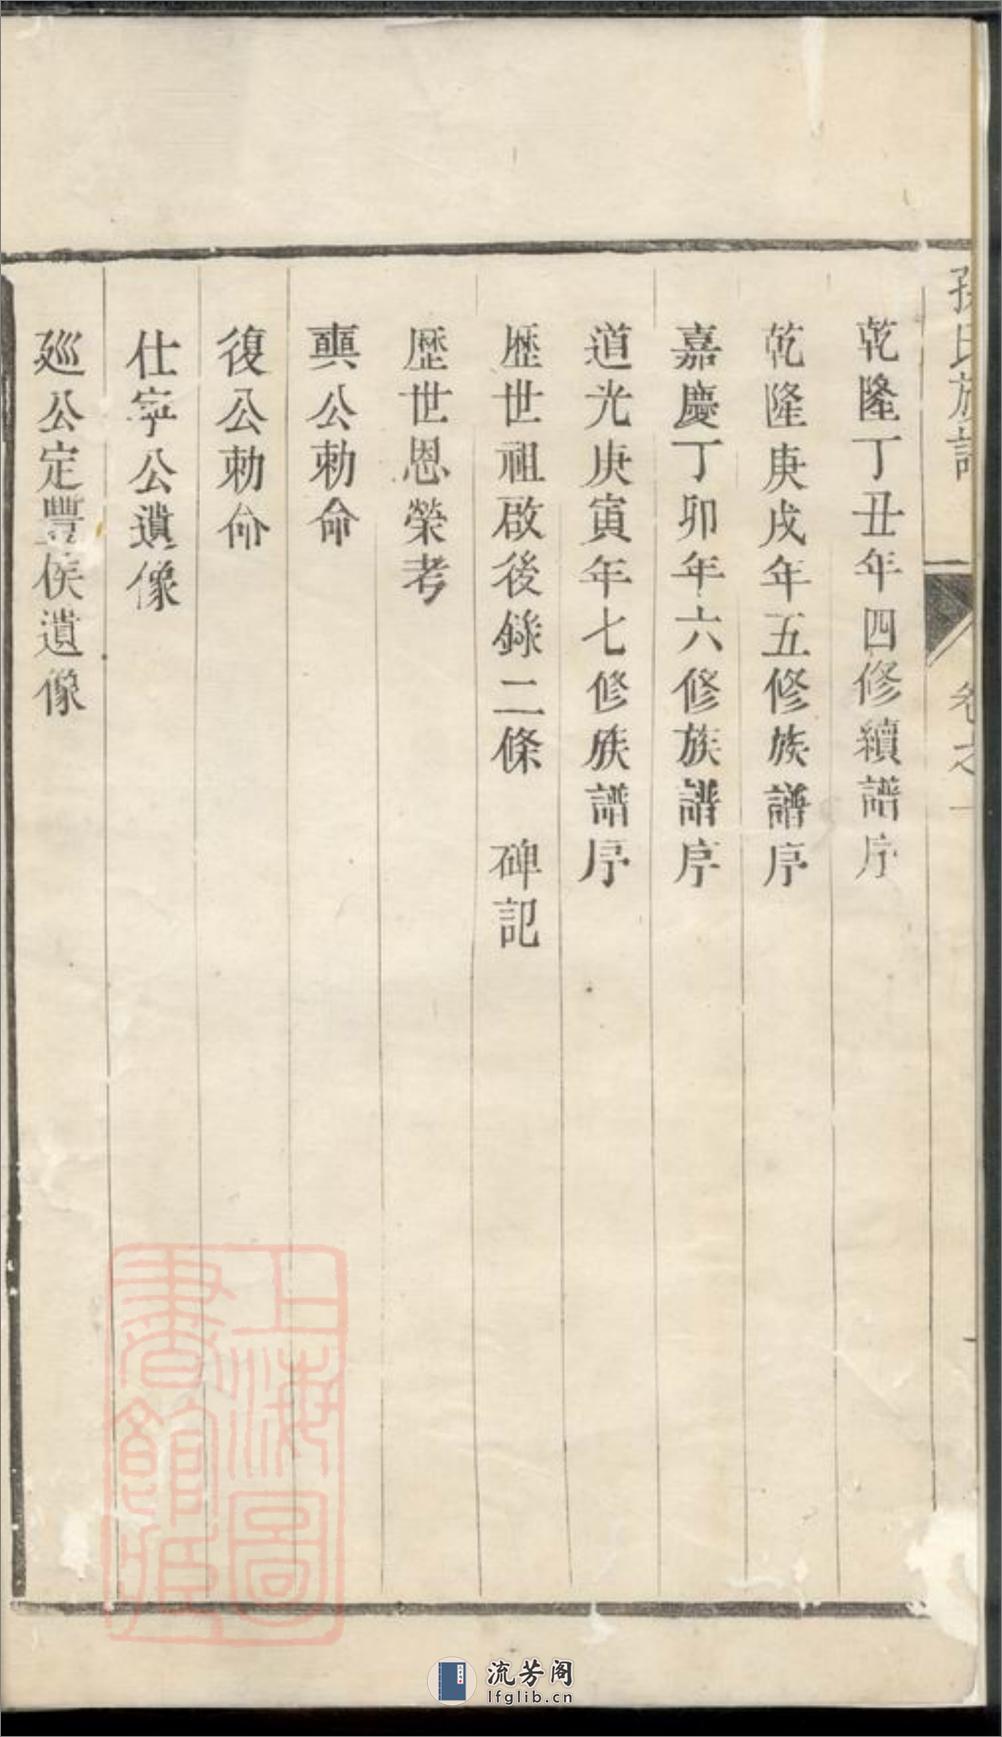 孫氏族譜
卷之一
乾隆丁丑年四修續譜序
乾隆庚戌年五修族譜序
嘉慶丁卯年六修族譜序
道光庚寅年七修族譜序
歷世祖啟後錄二條 碑記
歷世恩榮考
公勅命
復公勅命
仕寧公遺像
巡公定豐侯遺像
上海圖書館藏
流芳阁
lfglib.cn